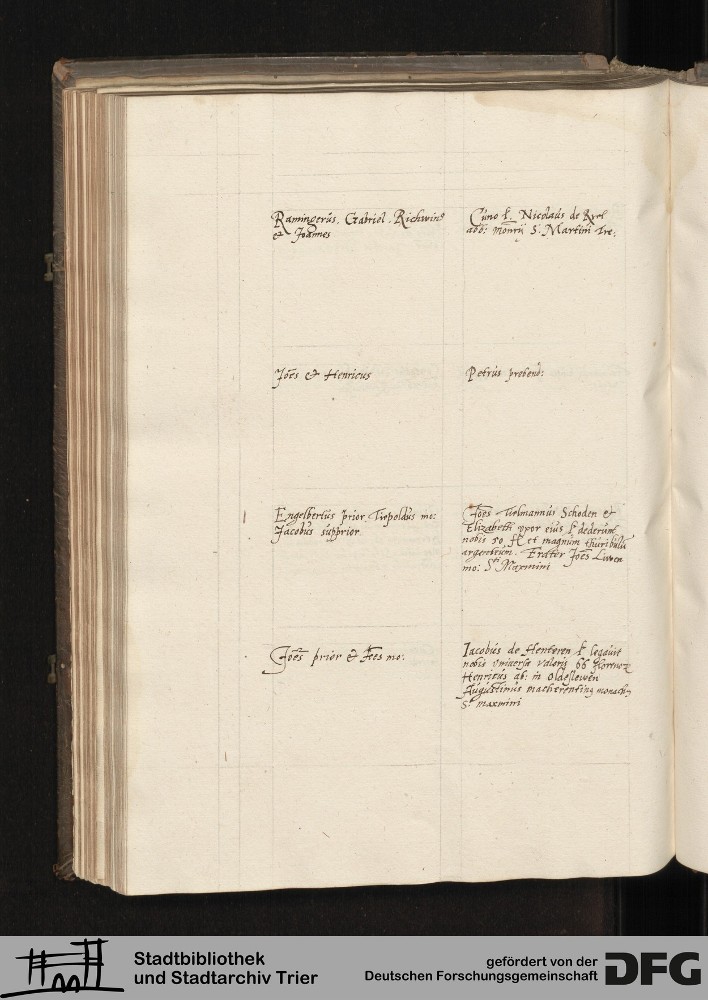 Ramingerus, Gabriel, Richwin9
et Joannes
Cuno ł. Nicolaus de
abb: monrij S. Martini Tre:
Joēs et Henricus
Petrus probend:
Engelbertus prior, Tiepoldus mo:
Jacobus supprior
Joēs Tielmannus Schoden et
Elizabeth vxor eius ł dederunt
nobis 50 fl et magnum thuribulū
argenteum. Frater Joēs Liwen
mo: Sti Maxmini
Joēs prior et Joēs mo:
Jacobus de Henteren ł legavit
nobis vniversa valoris 66 florenorꝫ
Henricus ab: in
Augustinus monach9
S. maxmini
Stadtbibliothek
und Stadtarchiv Trier
gefördert von der
Deutschen Forschungsgemeinschaft
DFG